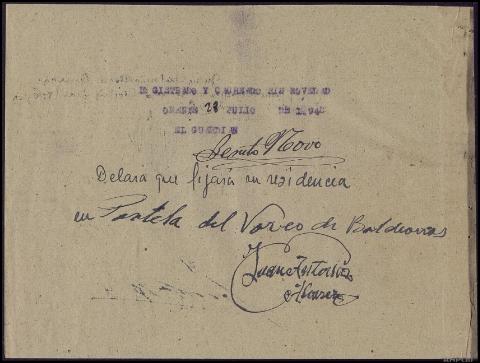 REGISTRADO Y CACHEADO SIN NOVEDAD
ORENSE 28 JULIO DE 194
EL GUARDIAN
Benito Novo
Delara que fijará su residencia
en Portela del Varco de Baldeorras
Juan Antonio
Alvarez